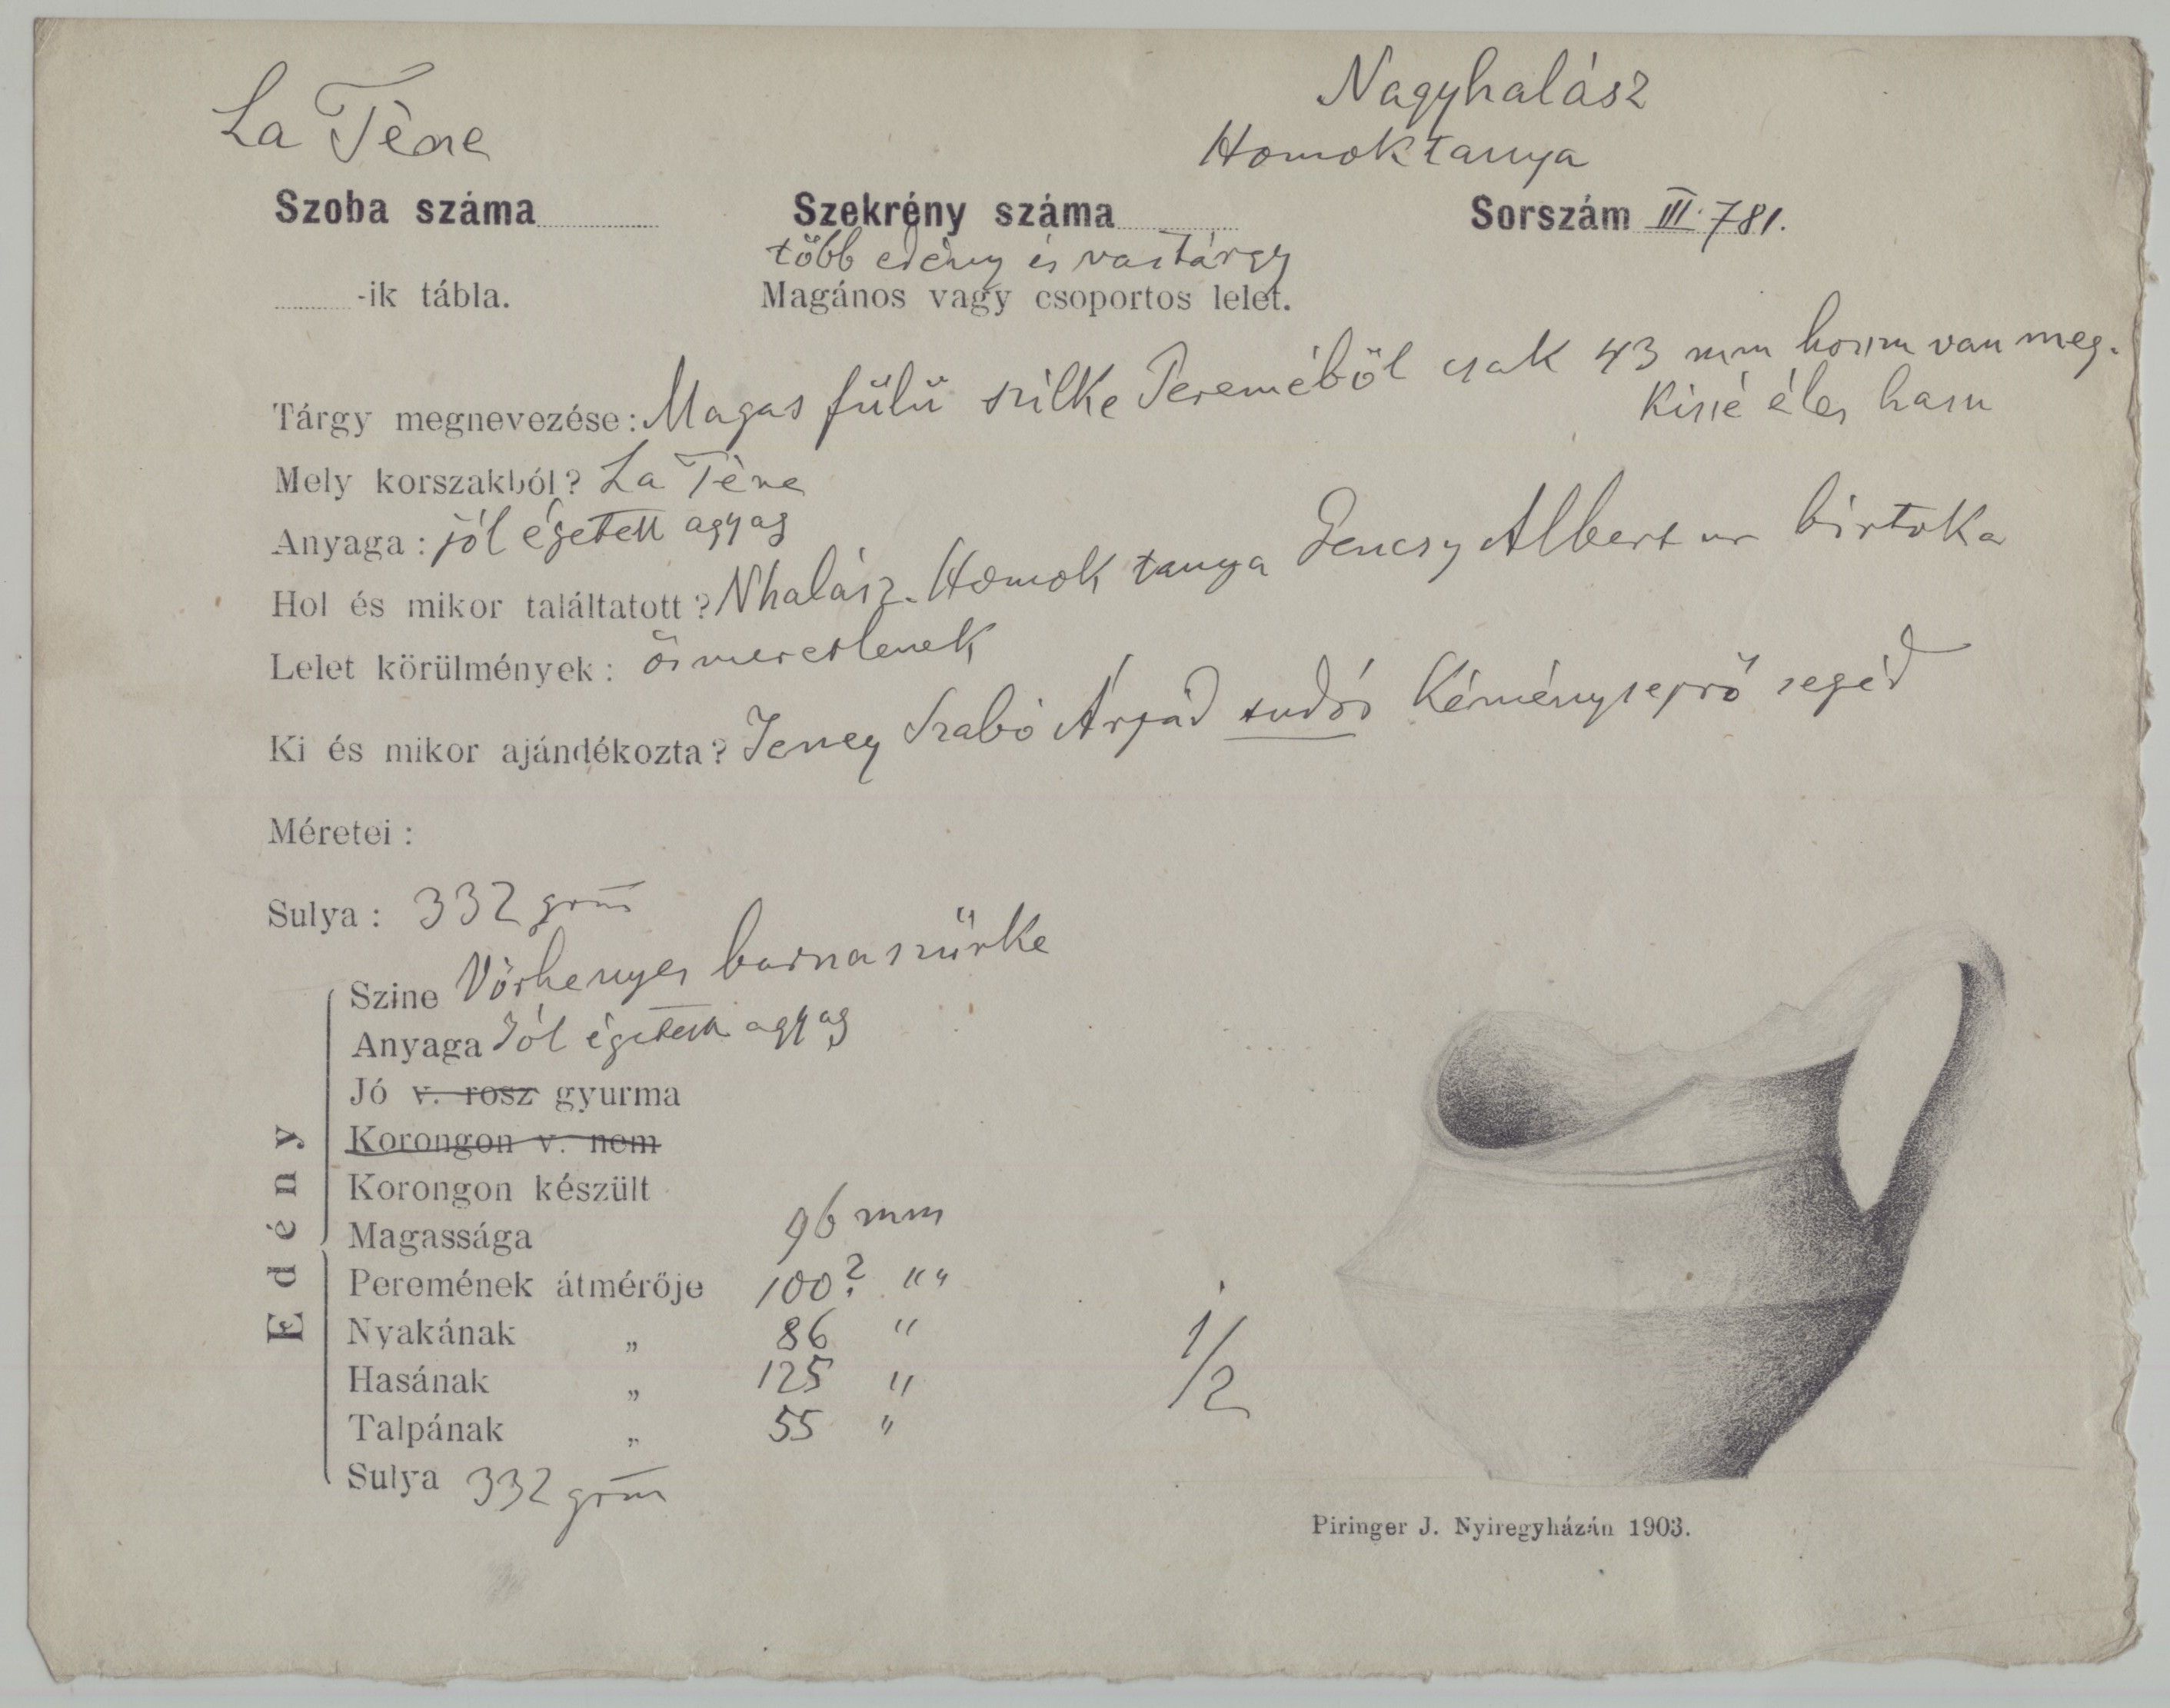 La Tène
Nagyhalász
Homoktanya
Szoba száma
Szekrény száma
Sorszám III. 781.
több edény és vastárgy
-ik tábla.
Magános vagy csoportos lelet.
Tárgy megnevezése: Magas fülü szilke Pereméböl csak 43 mm hossu van meg.
Kissé éles hasu
Mely korszakból? La Tène
Anyaga: jól égetett agyag
Hol és mikor találtatott? Nhalász. Homok tanya Gencsy Albert ur birtoka
Lelet körülmények: ösmeretlenek
Ki és mikor ajándékozta? Jeney Szabó Árpád tudós Kéményseprö segéd
Méretei:
Sulya: 332 grm
Edény
Szine Vörhenyes barnaszürke
Anyaga Jól égetett agyag
Jó v. rosz gyurma
Korongon v. nem
Korongon készült
Magassága 96 mm
Peremének átmérője 100? ""
Nyakának „ 86 "
Hasának „ 125 "
Talpának „ 55 "
Sulya 332 grm
1/2
Piringer J. Nyiregyházán 1903.